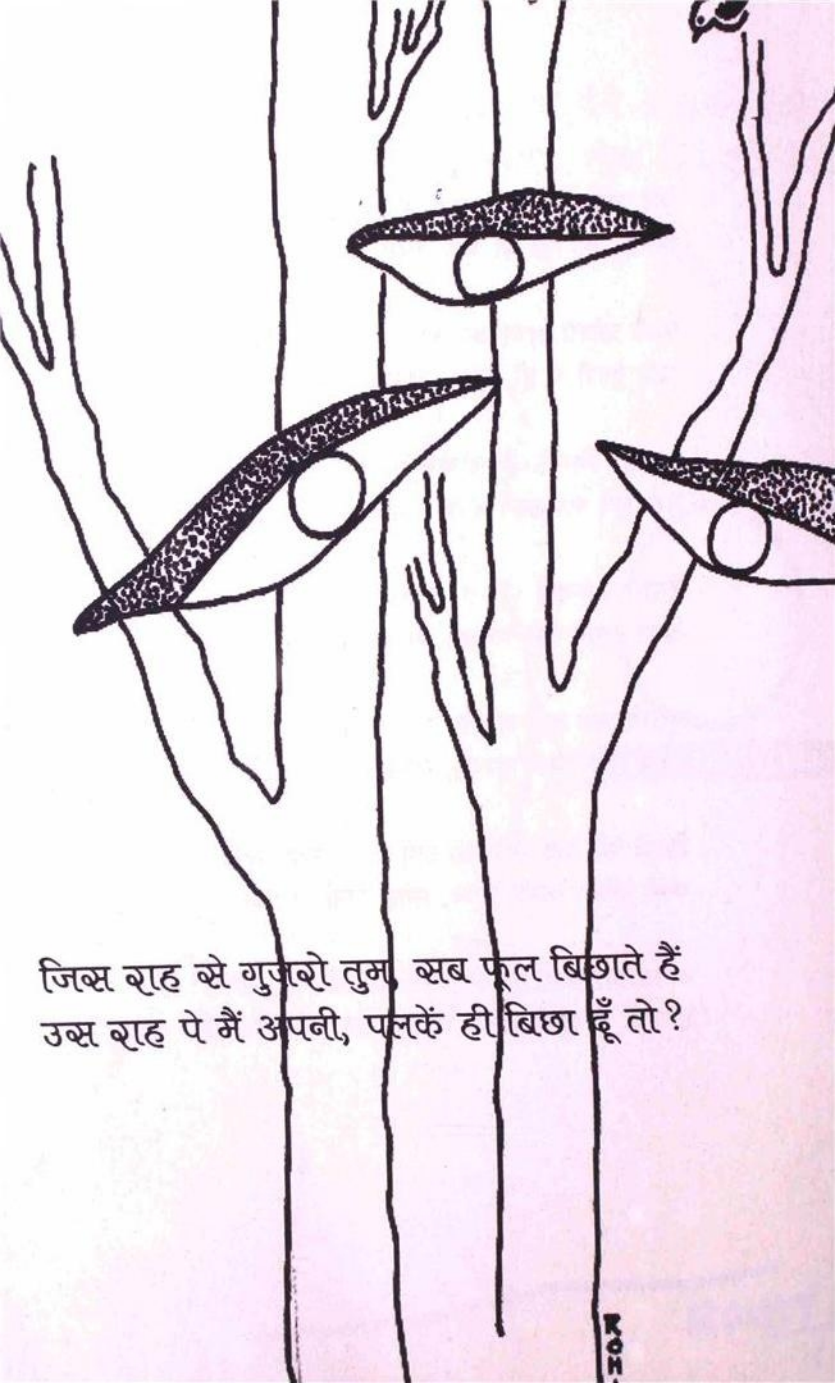 जिस राह से गुजरो तुम, सब फूल बिछाते हैं
उस राह पे मैं अपनी, पलकें ही बिछा दूँ तो?